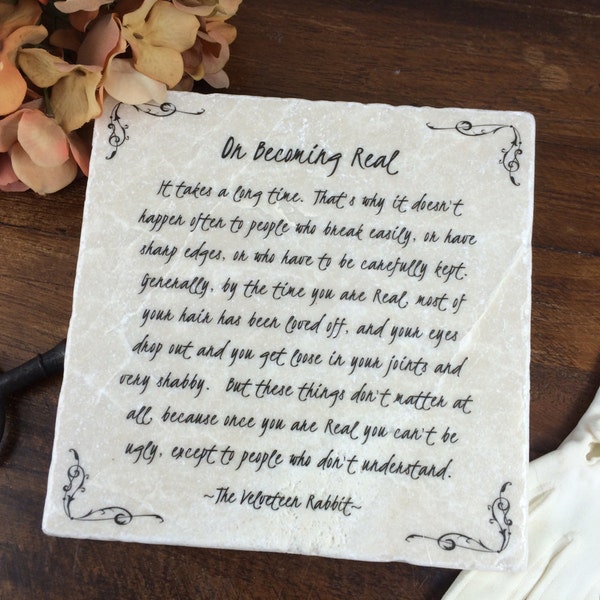 On Becoming Real
It takes a long time. That's why it doesn't
happen often to people who break easily, or have
sharp edges, or who have to be carefully kept.
Generally, by the time you are Real, most of
your hair has been loved off, and your eyes
drop out and you get loose in your joints and
very shabby. But these things don't matter at
all, because once you are Real you can't be
ugly, except to people who don't understand.
~The Velveteen Rabbit~